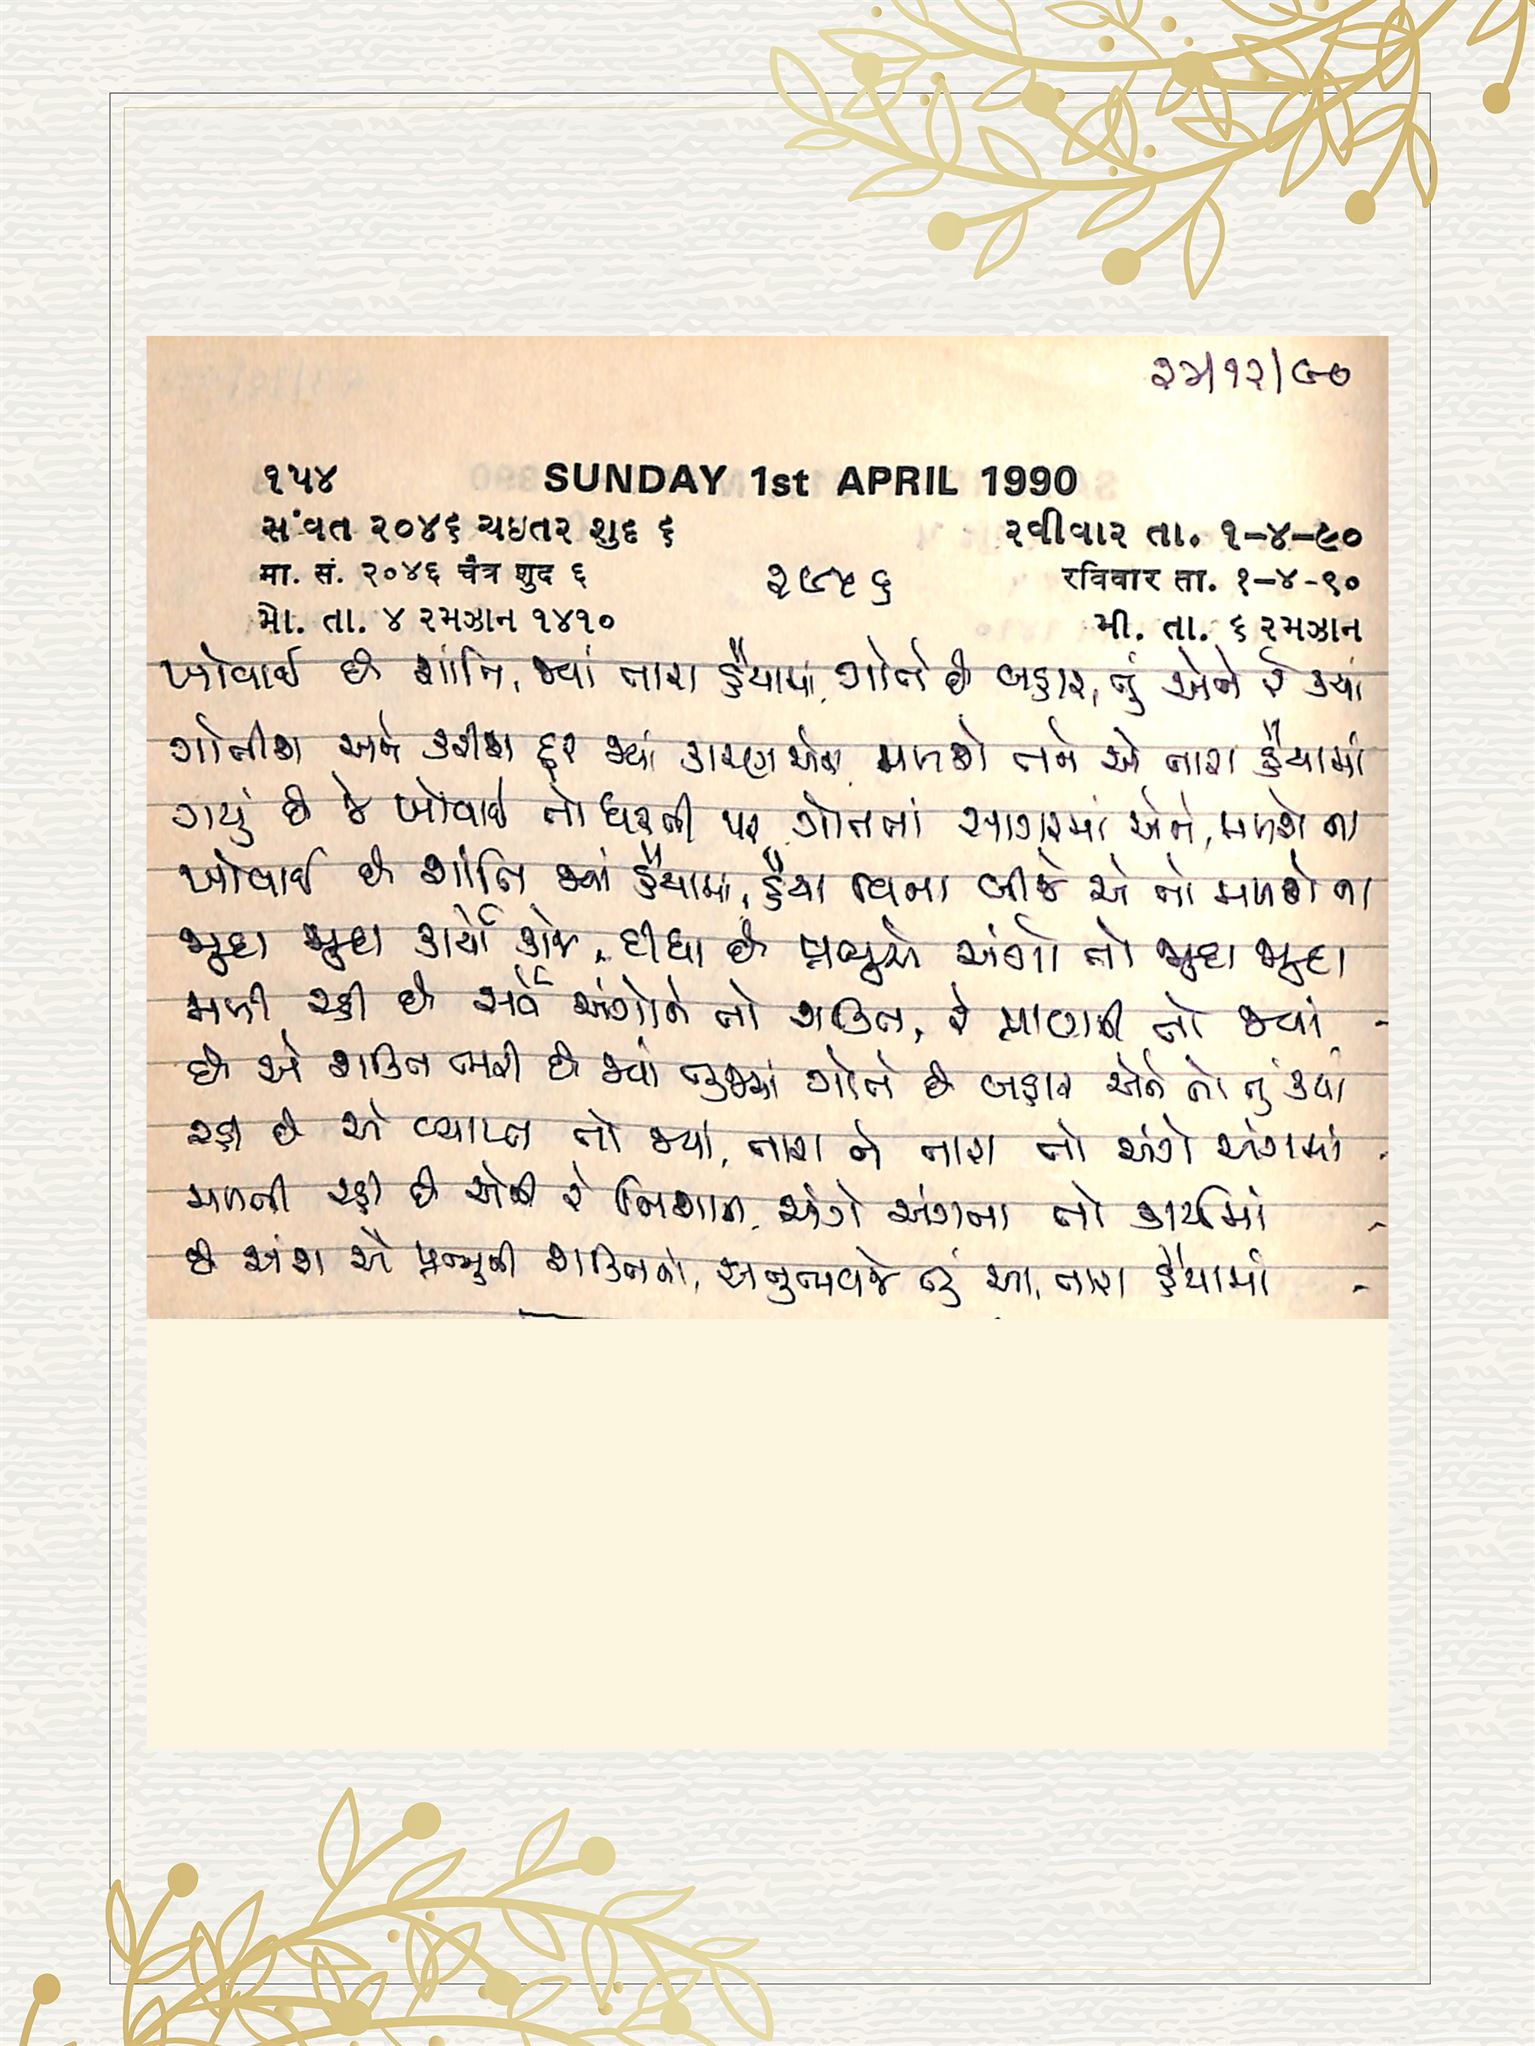 ૨૪/૧૨/૯૦
૧૫૪ SUNDAY 1st APRIL 1990
સંવત ૨૦૪૬ ચઇતર શુદ ૬ રવીવાર તા. ૧-૪-૯૦
मा. सं. २०४६ चैत्र शुद ६ ૨૯૫૬ रविवार ता. १-४-९०
મો. તા. ૪ રમઝાન ૧૪૧૦ મી. તા. ૬ રમઝાન
ખોવાઈ છે શાંતિ, જ્યાં તારા હૈયામાં, ગોતે છે બહાર, તું એને રે ક્યાં
ગોતીશ અને કરીશ દૂર જ્યાં કારણ એના મળશે તને એ તારા હૈયામાં
ગયું છે જે ખોવાઈ તો ધરતી પર, ગોતતાં સાગરમાં એને, મળશે ના
ખોવાઈ છે શાંતિ જ્યાં હૈયામાં, હૈયા વિના બીજે એ તો મળશે ના
જુદા જુદા કાર્યો કાજે, દીધા છે પ્રભુએ અંગો તો જુદા જુદા
મળી રહી છે સર્વે અંગોને તો શક્તિ, રે પ્રાણની તો જ્યાં
છે એ શક્તિ ભરી છે જ્યાં તુજમાં ગોતે છે બહાર એને તો તું ક્યાં
રહી છે એ વ્યાપ્ત તો જ્યાં, તારા ને તારા તો અંગે અંગમાં
મળતી રહી છે એની રે નિશાની, અંગે અંગના તો કાર્યમાં
છે અંશ એ પ્રભુની શક્તિનો, અનુભવજે તું આ, તારા હૈયામાં